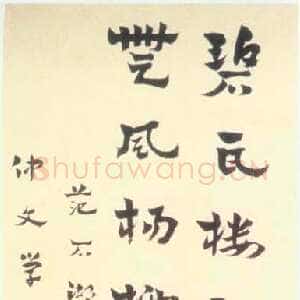 碧瓦楼
無风杨柳
范石湖
文学
Shufawang.CN